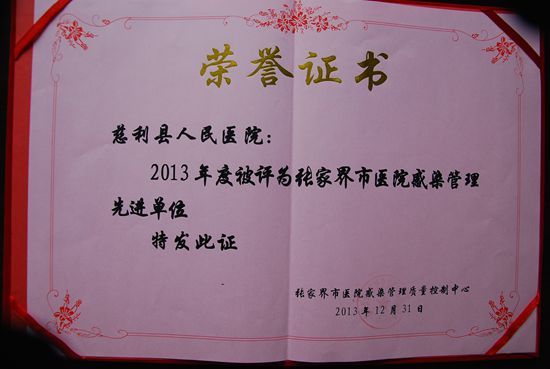 荣誉证书
慈利县人民医院：
2013年度被评为张家界市医院感染管理
先进单位
特发此证
张家界市医院感染管理质量控制中心
2013年12月31日